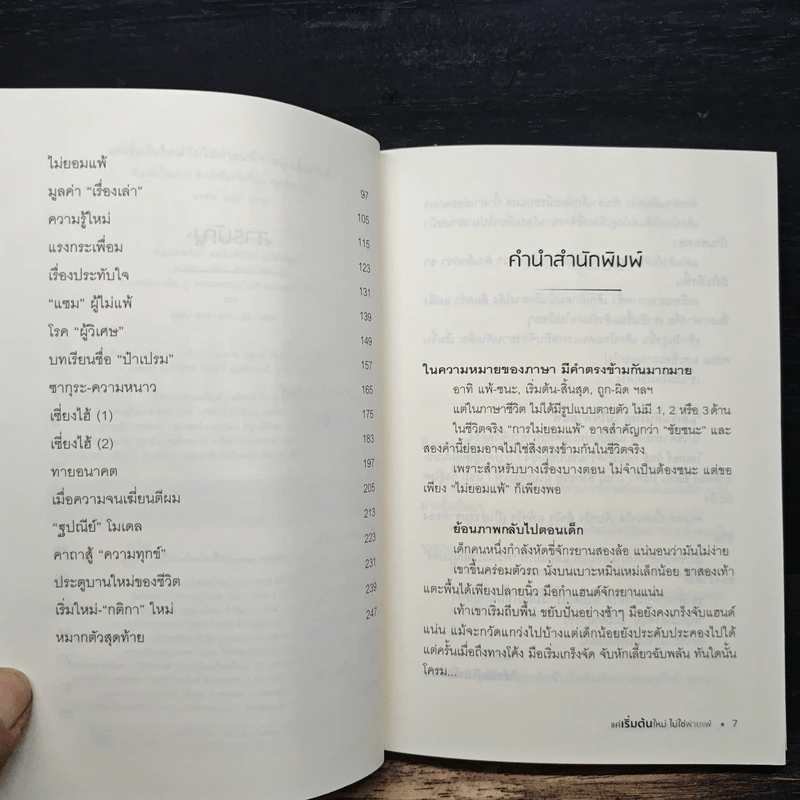 ไม่ยอมแพ้ 97
มูลค่า “เรื่องเล่า” 105
ความรู้ใหม่ 115
แรงกระเพื่อม 123
เรื่องประทับใจ 131
“แซม” ผู้ไม่แพ้ 139
โรค “ผู้วิเศษ” 149
บทเรียนชื่อ “ป๋าเปรม” 157
ซากุระ-ความหนาว 165
เซี่ยงไฮ้ (1) 175
เซี่ยงไฮ้ (2) 183
ทายอนาคต 197
เมื่อความจนเฆี่ยนตีผม 205
“ฐปณีย์” โมเดล 213
คาถาสู้ “ความทุกข์” 223
ประตูบานใหม่ของชีวิต 231
เริ่มใหม่-“กติกา” ใหม่ 239
หมากตัวสุดท้าย 247
คำนำสำนักพิมพ์
ในความหมายของภาษา มีคำตรงข้ามกันมากมาย
อาทิ แพ้-ชนะ, เริ่มต้น-สิ้นสุด, ถูก-ผิด ฯลฯ
แต่ในภาษาชีวิต ไม่ได้มีรูปแบบตายตัว ไม่มี 1, 2 หรือ 3 ด้าน
ในชีวิตจริง “การไม่ยอมแพ้” อาจสำคัญกว่า “ชัยชนะ” และ
สองคำนี้ย่อมอาจไม่ใช่สิ่งตรงข้ามกันในชีวิตจริง
เพราะสำหรับบางเรื่องบางตอน ไม่จำเป็นต้องชนะ แต่ขอ
เพียง “ไม่ยอมแพ้” ก็เพียงพอ
ย้อนภาพกลับไปตอนเด็ก
เด็กคนหนึ่งกำลังหัดขี่จักรยานสองล้อ แน่นอนว่ามันไม่ง่าย
เขาขึ้นคร่อมตัวรถ นั่งบนเบาะหมิ่นเหม่เล็กน้อย ขาสองเท้า
แตะพื้นได้เพียงปลายนิ้ว มือกำแฮนด์จักรยานแน่น
เท้าเขาเริ่มถีบพื้น ขยับปั่นอย่างช้าๆ มือยังคงเกร็งจับแฮนด์
แน่น แม้จะกวัดแกว่งไปบ้างแต่เด็กน้อยยังประคับประคองไปได้
แต่ครั้นเมื่อถึงทางโค้ง มือเริ่มเกร็งจัด จับหักเลี้ยวฉับพลัน ทันใดนั้น
โครม...
แค่เริ่มต้นใหม่ ไม่ใช่พ่ายแพ้ • 7